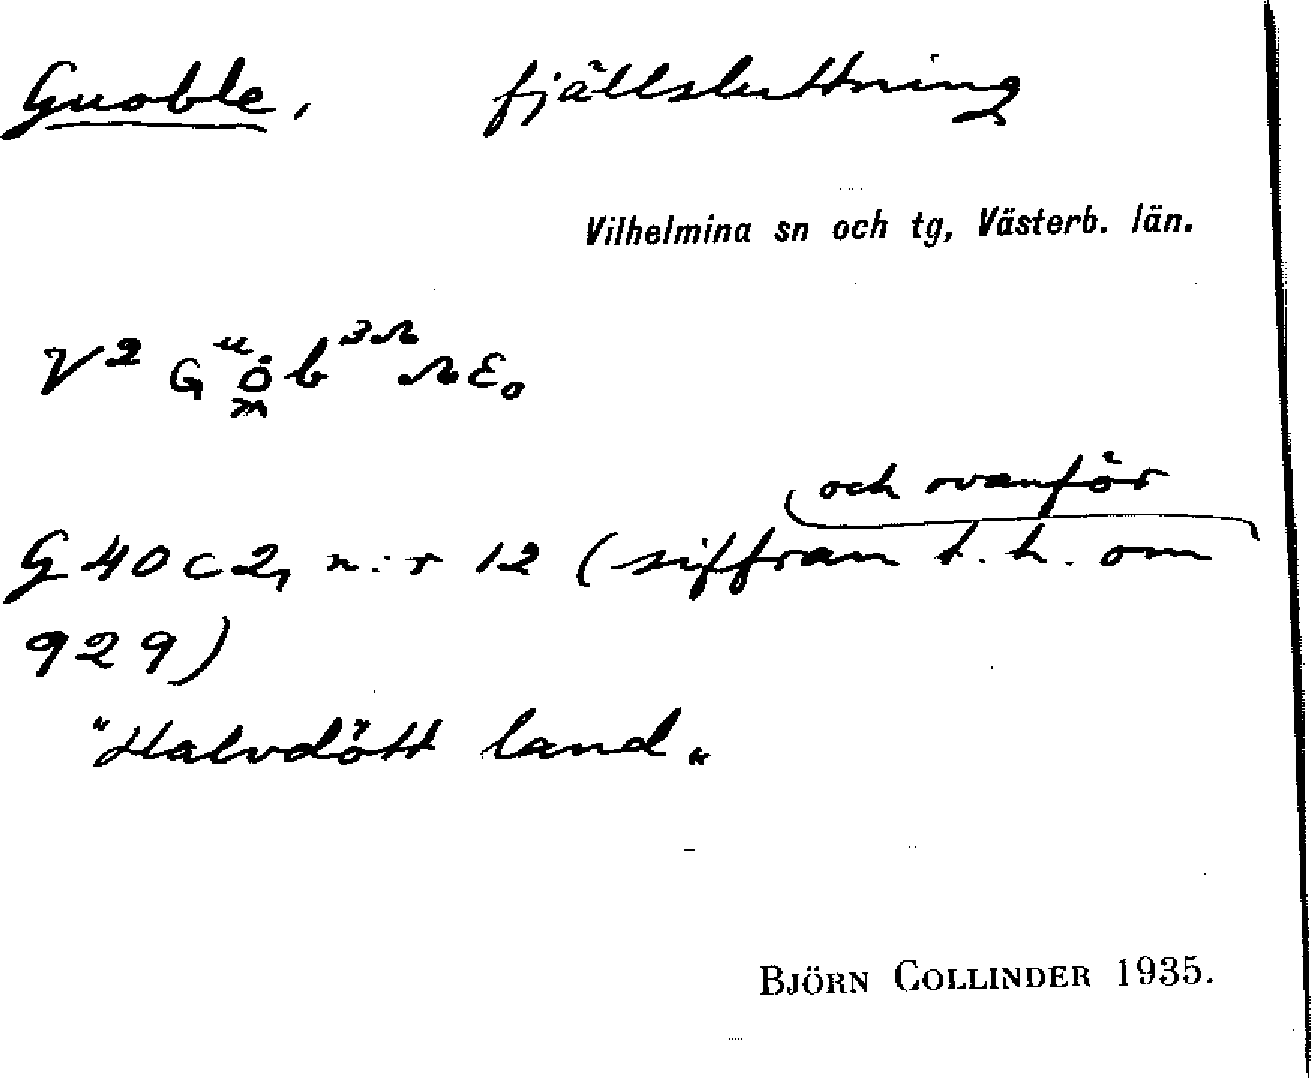 Guoble, fjällsluttning
Vilhelmina sn och tg, Västerb. län.
V2
och ovanför
G 40 c 2, n:r 12 (siffran t.h. om
929)
"Halvdött land"
BJÖRN COLLINDER 1935.